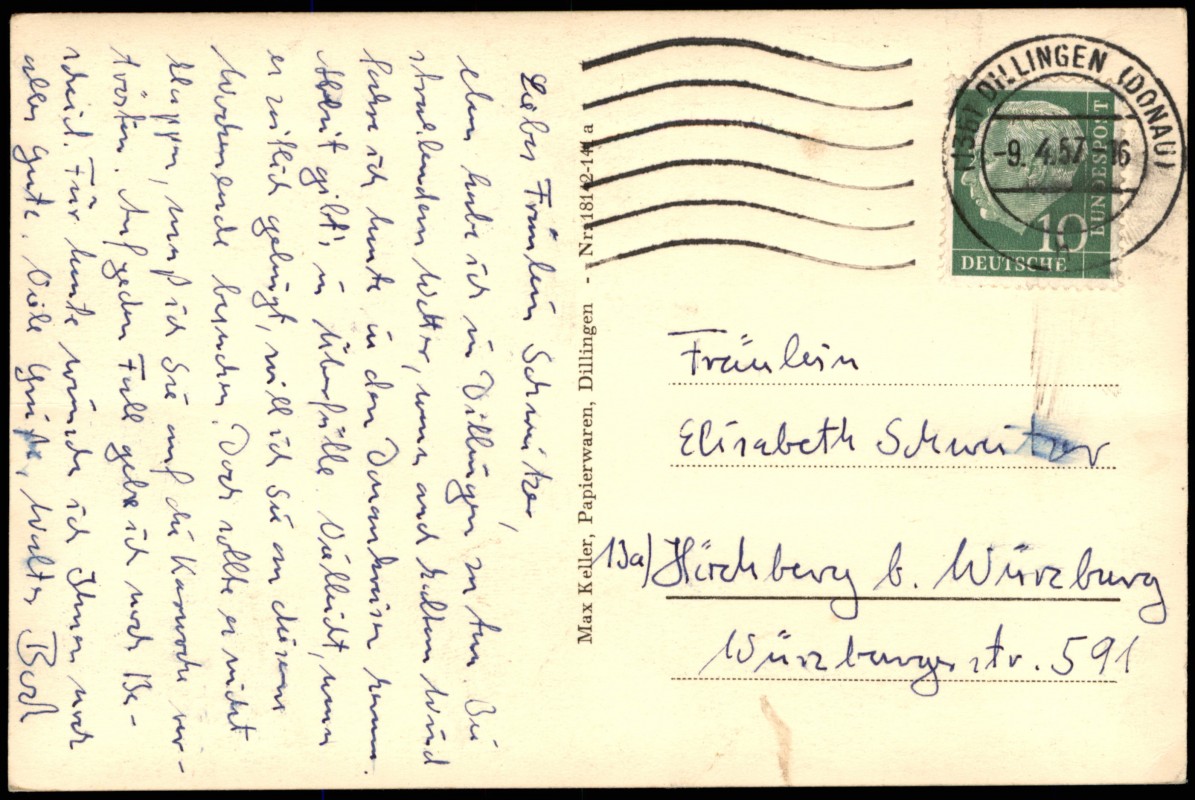 Liebes Fräulein Schweitzer,
eben habe ich in Dillingen zu tun. Bei
strahlendem Wetter, wenn auch kaltem Wind
fahre ich heute in den Donaukreisen herum.
Arbeit gibt's in Überfülle. Vielleicht, wenn
es zeitlich gelingt, will ich Sie an diesem
Wochenende besuchen. Doch sollte es nicht
klappen, muß ich Sie auf die Karwoche ver-
trösten. Auf jeden Fall gebe ich noch Be-
scheid. Für heute wünsche ich Ihnen noch
alles Gute. Viele Grüße, Walter Bock
Max Keller, Papierwaren, Dillingen - Nr. 18142-14 a
(13b) DILLINGEN (DONAU)
-9. 4.57 16
10
DEUTSCHE
BUNDESPOST
Fräulein
Elisabeth Schweitzer
13a) Höchberg b. Würzburg
Würzburgerstr. 591